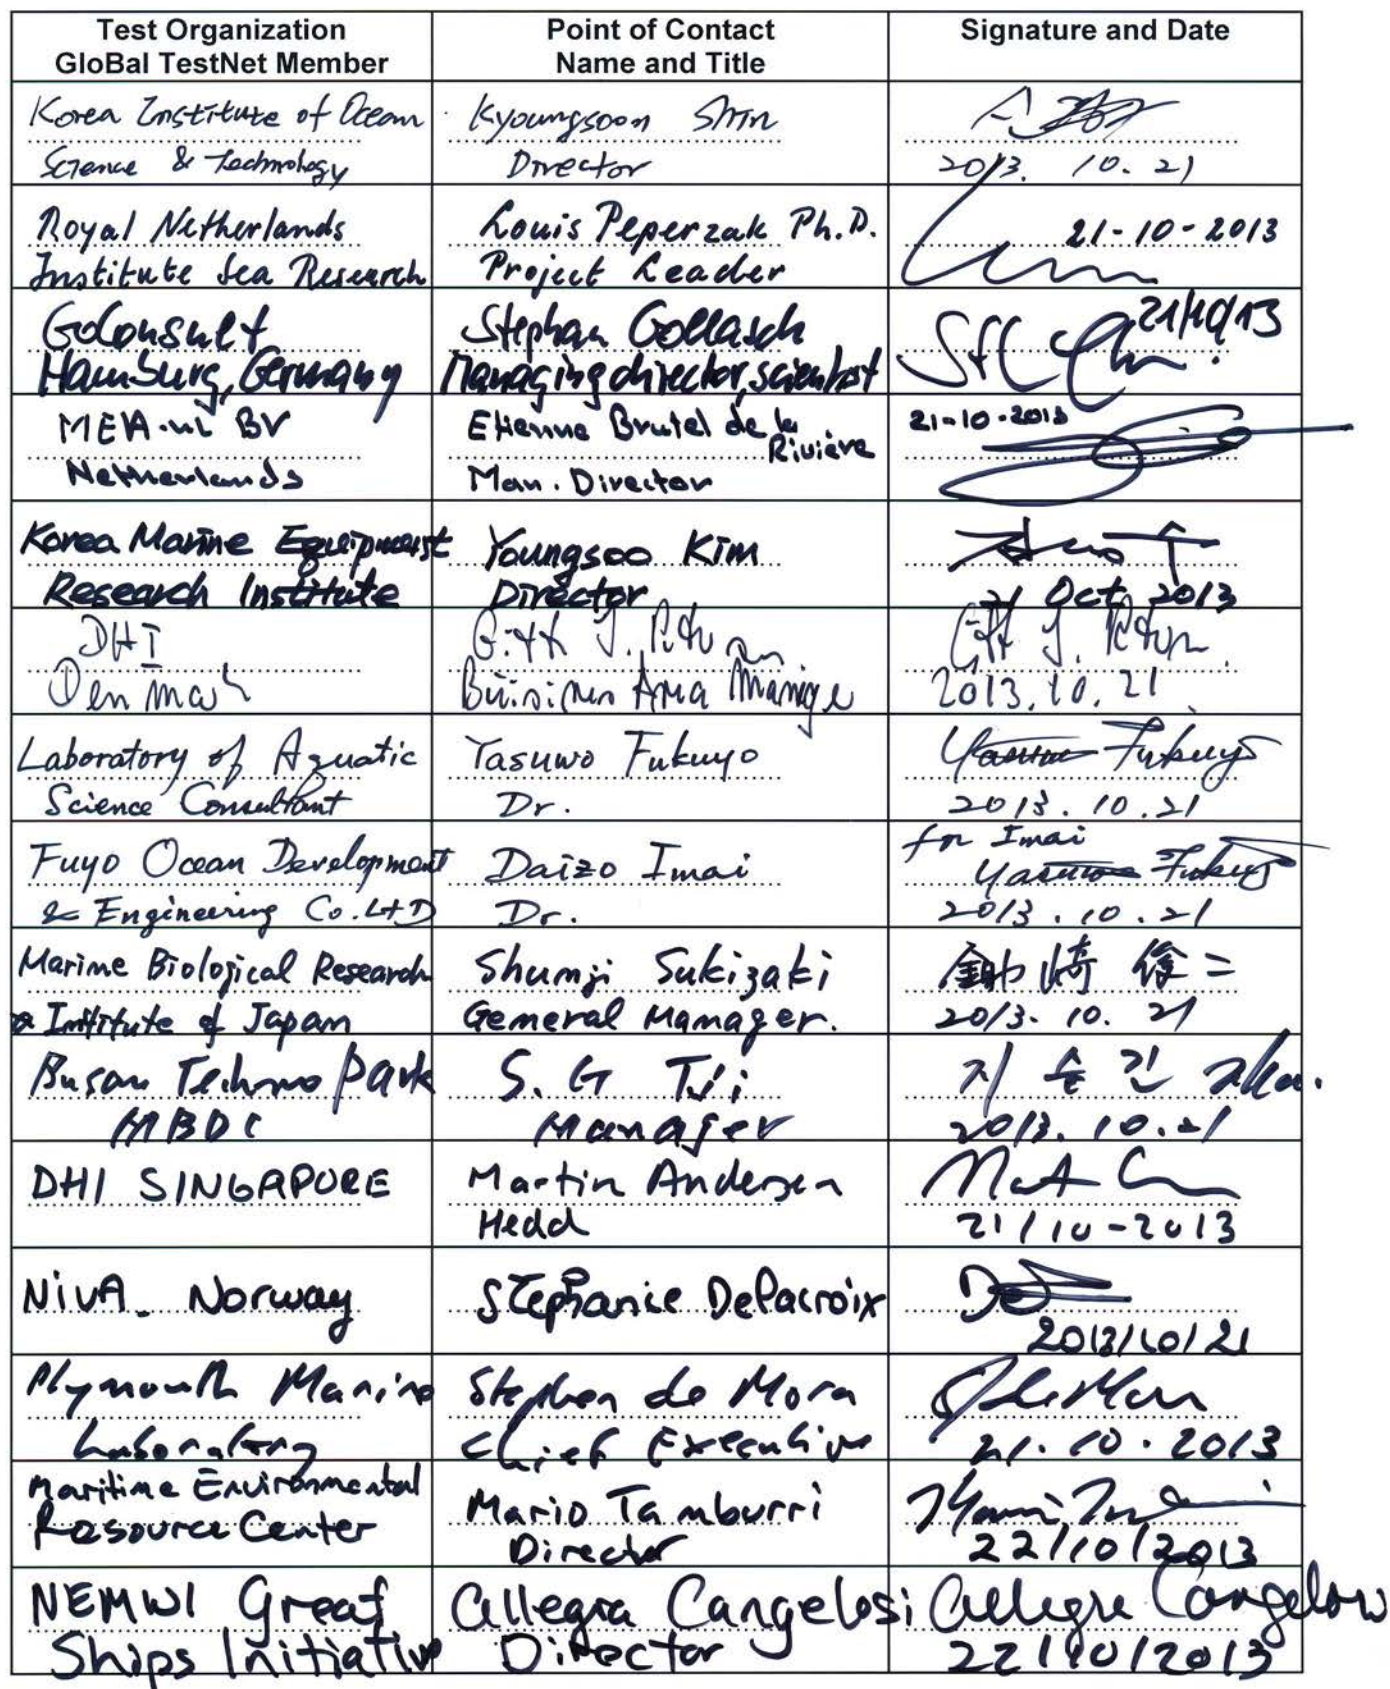 Test Organization
GloBal TestNet Member
Point of Contact
Name and Title
Signature and Date
Korea Institute of Ocean
Science & Technology
Kyoungsoon Shin
Director
2013. 10. 21
Royal Netherlands
Institute Sea Research
Louis Peperzak Ph.D.
Project Leader
21-10-2013
GoConsult
Hamburg, Germany
Stephan Gollasch
Managing director, scientist
21/10/13
MEA-nl BV
Netherlands
Etienne Brutel de la
Rivière
Man. Director
21-10-2013
Korea Marine Equipment
Research Institute
Youngsoo Kim
Director
21 Oct 2013
DHI
Denmark
Gitte J. Petersen
Business Area Manager
Gitte J. Petersen
2013.10.21
Laboratory of Aquatic
Science Consultant
Yasuwo Fukuyo
Dr.
Yasuwo Fukuyo
2013.10.21
Fuyo Ocean Development
& Engineering Co. LtD
Daizo Imai
Dr.
for Imai
Yasuwo Fukuyo
2013.10.21
Marine Biological Research
Institute of Japan
Shunji Sukizaki
General Manager.
鋤崎 俊二
2013. 10. 21
Busan Techno Park
MBDC
S. G Tji
Manager
2013.10.21
DHI SINGAPORE
Martin Andersen
Head
21/10-2013
NIVA. Norway
Stephanie Delacroix
2013/10/21
Plymouth Marine
Laboratory
Stephen de Mora
Chief Executive
21.10.2013
Maritime Environmental
Resource Center
Mario Tamburri
Director
22/10/2013
NEMWI Great
Ships Initiative
Allegra Cangelosi
Director
Allegra Cangelosi
22/10/2013